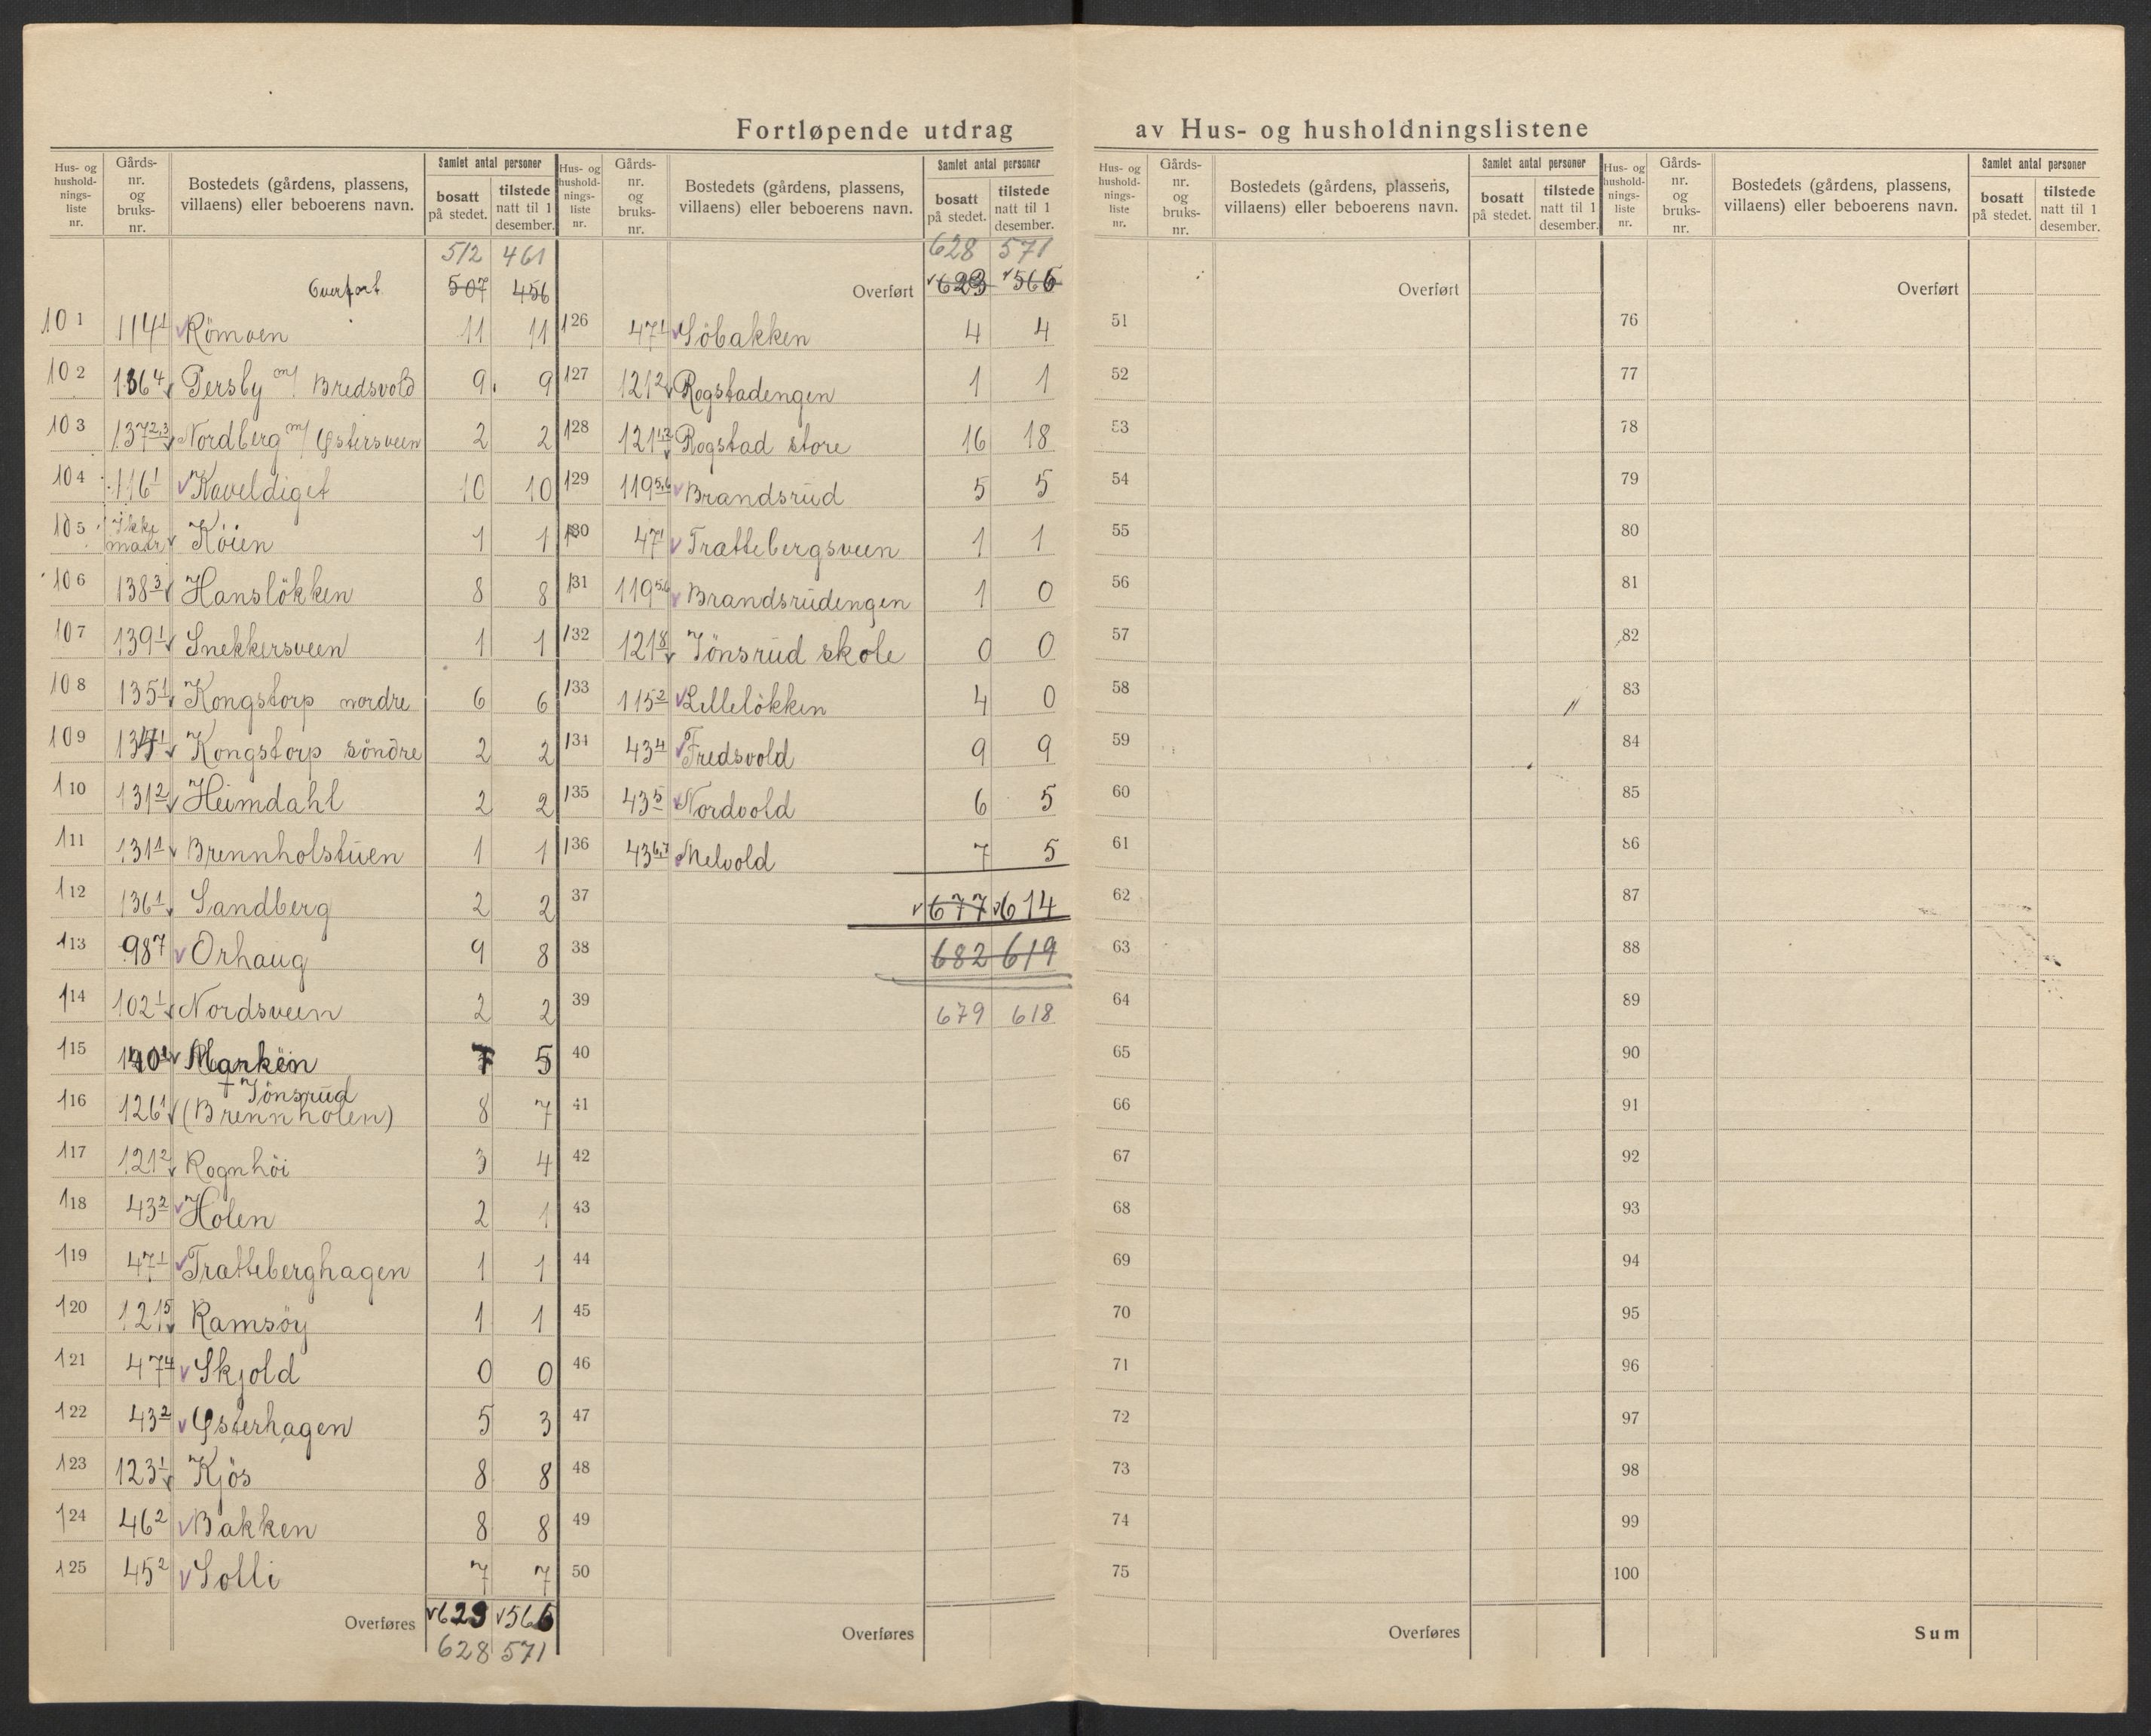 Fortløpende utdrag av Hus- og husholdningslistene
Hus- og hushold- nings- liste nr. Gårds- nr. og bruks- nr. Bostedets (gårdens, plassens, villaens) eller beboerens navn. Samlet antal personer bosatt på stedet. tilstede natt til 1 desember.
512 461
Overført 507 456
101 114 1 Römoen 11 11
102 136 4 Persby m/ Bredsvold 9 9
103 137 2,3 Nordberg m/ Østersveen 2 2
104 116 1 Kaveldiget 10 10
105 Ikke matr Köien 1 1
106 138 3 Hanslökken 8 8
107 139 1 Snekkersveen 1 1
108 135 1 Kongstorp nordre 6 6
109 134 1 Kongstorp söndre 2 2
110 131 2 Heimdahl 2 2
111 131 1 Brennholstuen 1 1
112 136 1 Sandberg 2 2
113 98 7 Orhaug 9 8
114 102 1 Nordsveen 2 2
115 Marken 7 5
116 126 1 + Jönsrud (Brennholen) 8 7
117 121 2 Rognhöi 3 4
118 43 2 Holen 2 1
119 47 1 Tratteberghagen 1 1
120 121 5 Ramsöy 1 1
121 47 4 Skjold 0 0
122 43 2 Østerhagen 5 3
123 123 1 Kjös 8 8
124 46 2 Bakken 8 8
125 45 2 Solli 7 7
Overføres 623 566
628 571
Hus- og hushold- nings- liste nr. Gårds- nr. og bruks- nr. Bostedets (gårdens, plassens, villaens) eller beboerens navn. Samlet antal personer bosatt på stedet. tilstede natt til 1 desember.
628 571
Overført 623 566
126 47 1 Söbakken 4 4
127 121 2 Rogstadengen 1 1
128 121 1,3 Rogstad store 16 18
129 119 5,6 Brandsrud 5 5
130 47 1 Trattebergsveen 1 1
131 119 5,6 Brandsrudengen 1 0
132 121 8 Jönsrud skole 0 0
133 115 2 Lillelökken 4 0
134 43 4 Fredsvold 9 9
135 43 5 Nordvold 6 5
136 43 6,7 Melvold 7 5
37 677 614
38 682 619
39 679 618
40
41
42
43
44
45
46
47
48
49
50
Overføres
Hus- og hushold- nings- liste nr. Gårds- nr. og bruks- nr. Bostedets (gårdens, plassens, villaens) eller beboerens navn. Samlet antal personer bosatt på stedet. tilstede natt til 1 desember.
Overført
51
52
53
54
55
56
57
58
59
60
61
62
63
64
65
66
67
68
69
70
71
72
73
74
75
Overføres
Hus- og hushold- nings- liste nr. Gårds- nr. og bruks- nr. Bostedets (gårdens, plassens, villaens) eller beboerens navn. Samlet antal personer bosatt på stedet. tilstede natt til 1 desember.
Overført
76
77
78
79
80
81
82
83
84
85
86
87
88
89
90
91
92
93
94
95
96
97
98
99
100
Sum